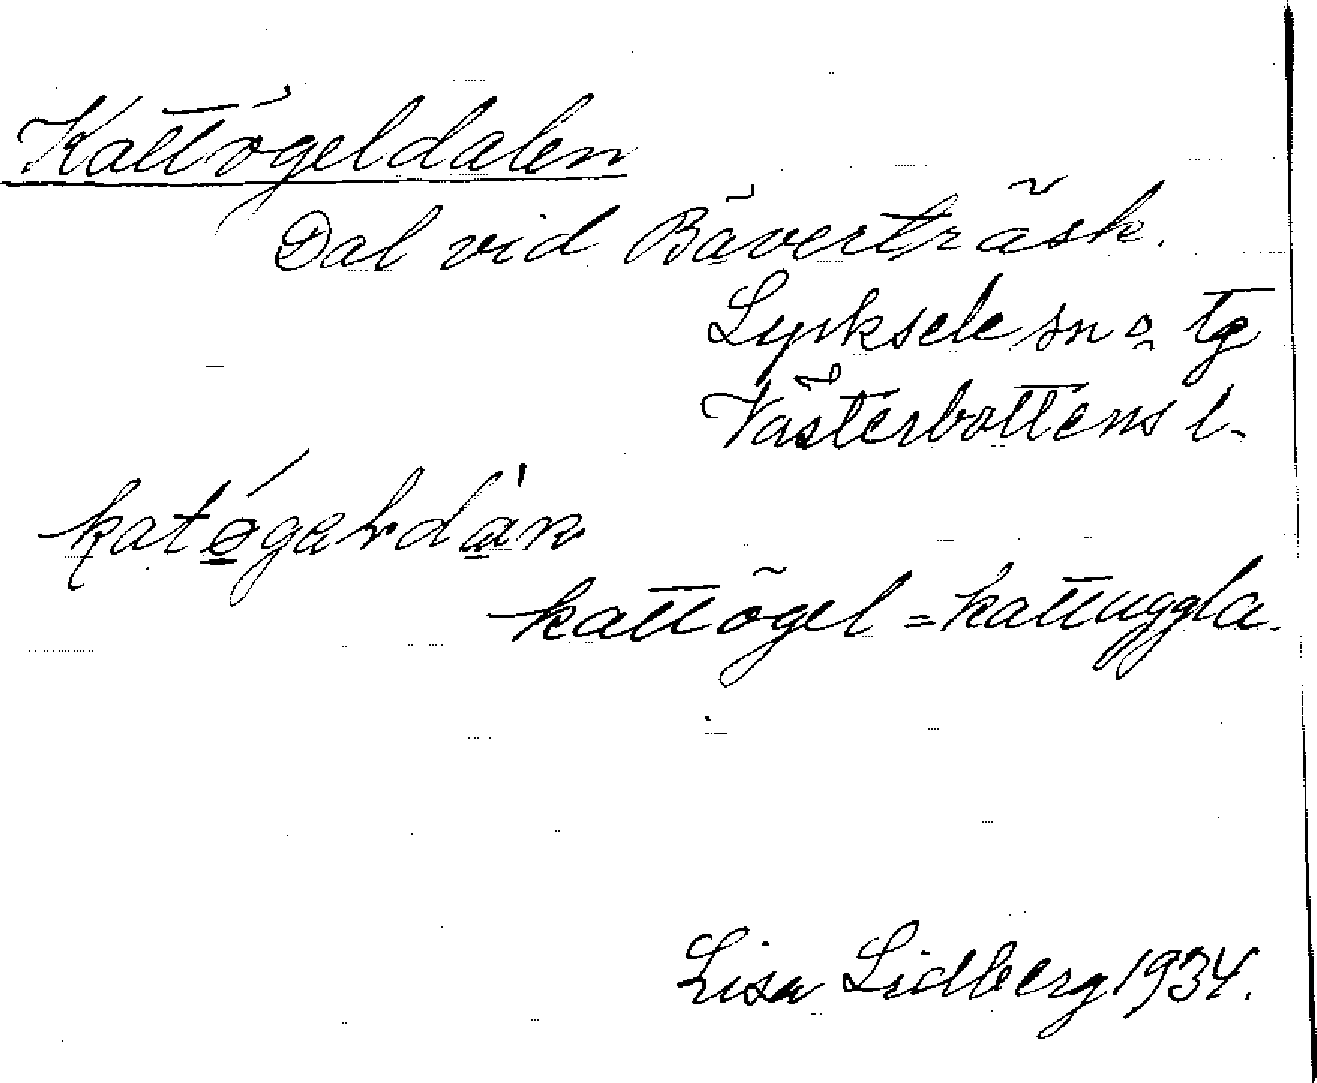 Kattögeldalen
Dal vid Bäverträsk.
Lycksele sn o tg
Västerbottens l.
kattögel = kattuggla.
Lisa Lidberg 1934.